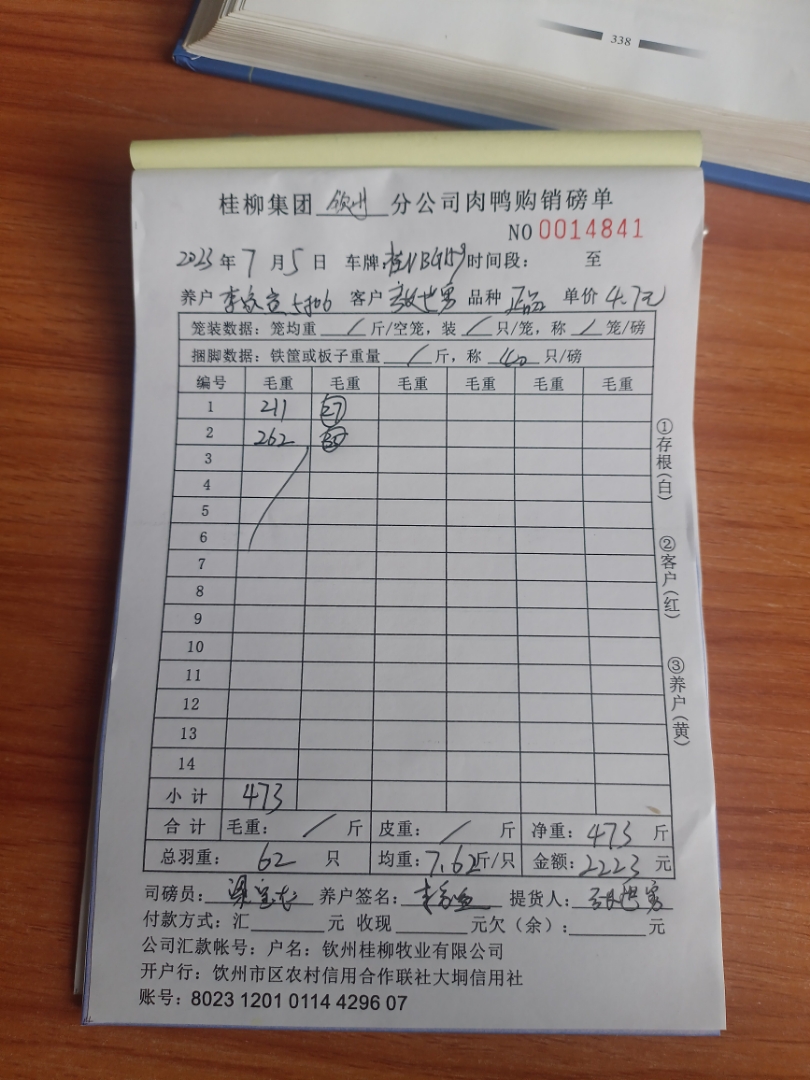 338
桂柳集团 钦州 分公司肉鸭购销磅单
NO 0014841
2023 年 7 月 5 日 车牌: 时间段: 至
养户 李 客户 品种 正品 单价 4.7元
笼装数据: 笼均重 / 斤/空笼, 装 / 只/笼, 称 / 笼/磅
捆脚数据: 铁筐或板子重量 / 斤, 称 40 只/磅
编号 毛重 毛重 毛重 毛重 毛重 毛重
1 211 27
2 262
3
4
5
6
7
8
9
10
11
12
13
14
小 计 473
合 计 毛重: / 斤 皮重: / 斤 净重: 473 斤
总羽重: 62 只 均重: 7.62 斤/只 金额: 2223 元
司磅员: 梁 养户签名: 李 提货人:
付款方式: 汇 元 收现 元欠（余）: 元
公司汇款帐号: 户名: 钦州桂柳牧业有限公司
开户行: 钦州市区农村信用合作联社大垌信用社
账号: 8023 1201 0114 4296 07
①存根(白)
②客户(红)
③养户(黄)